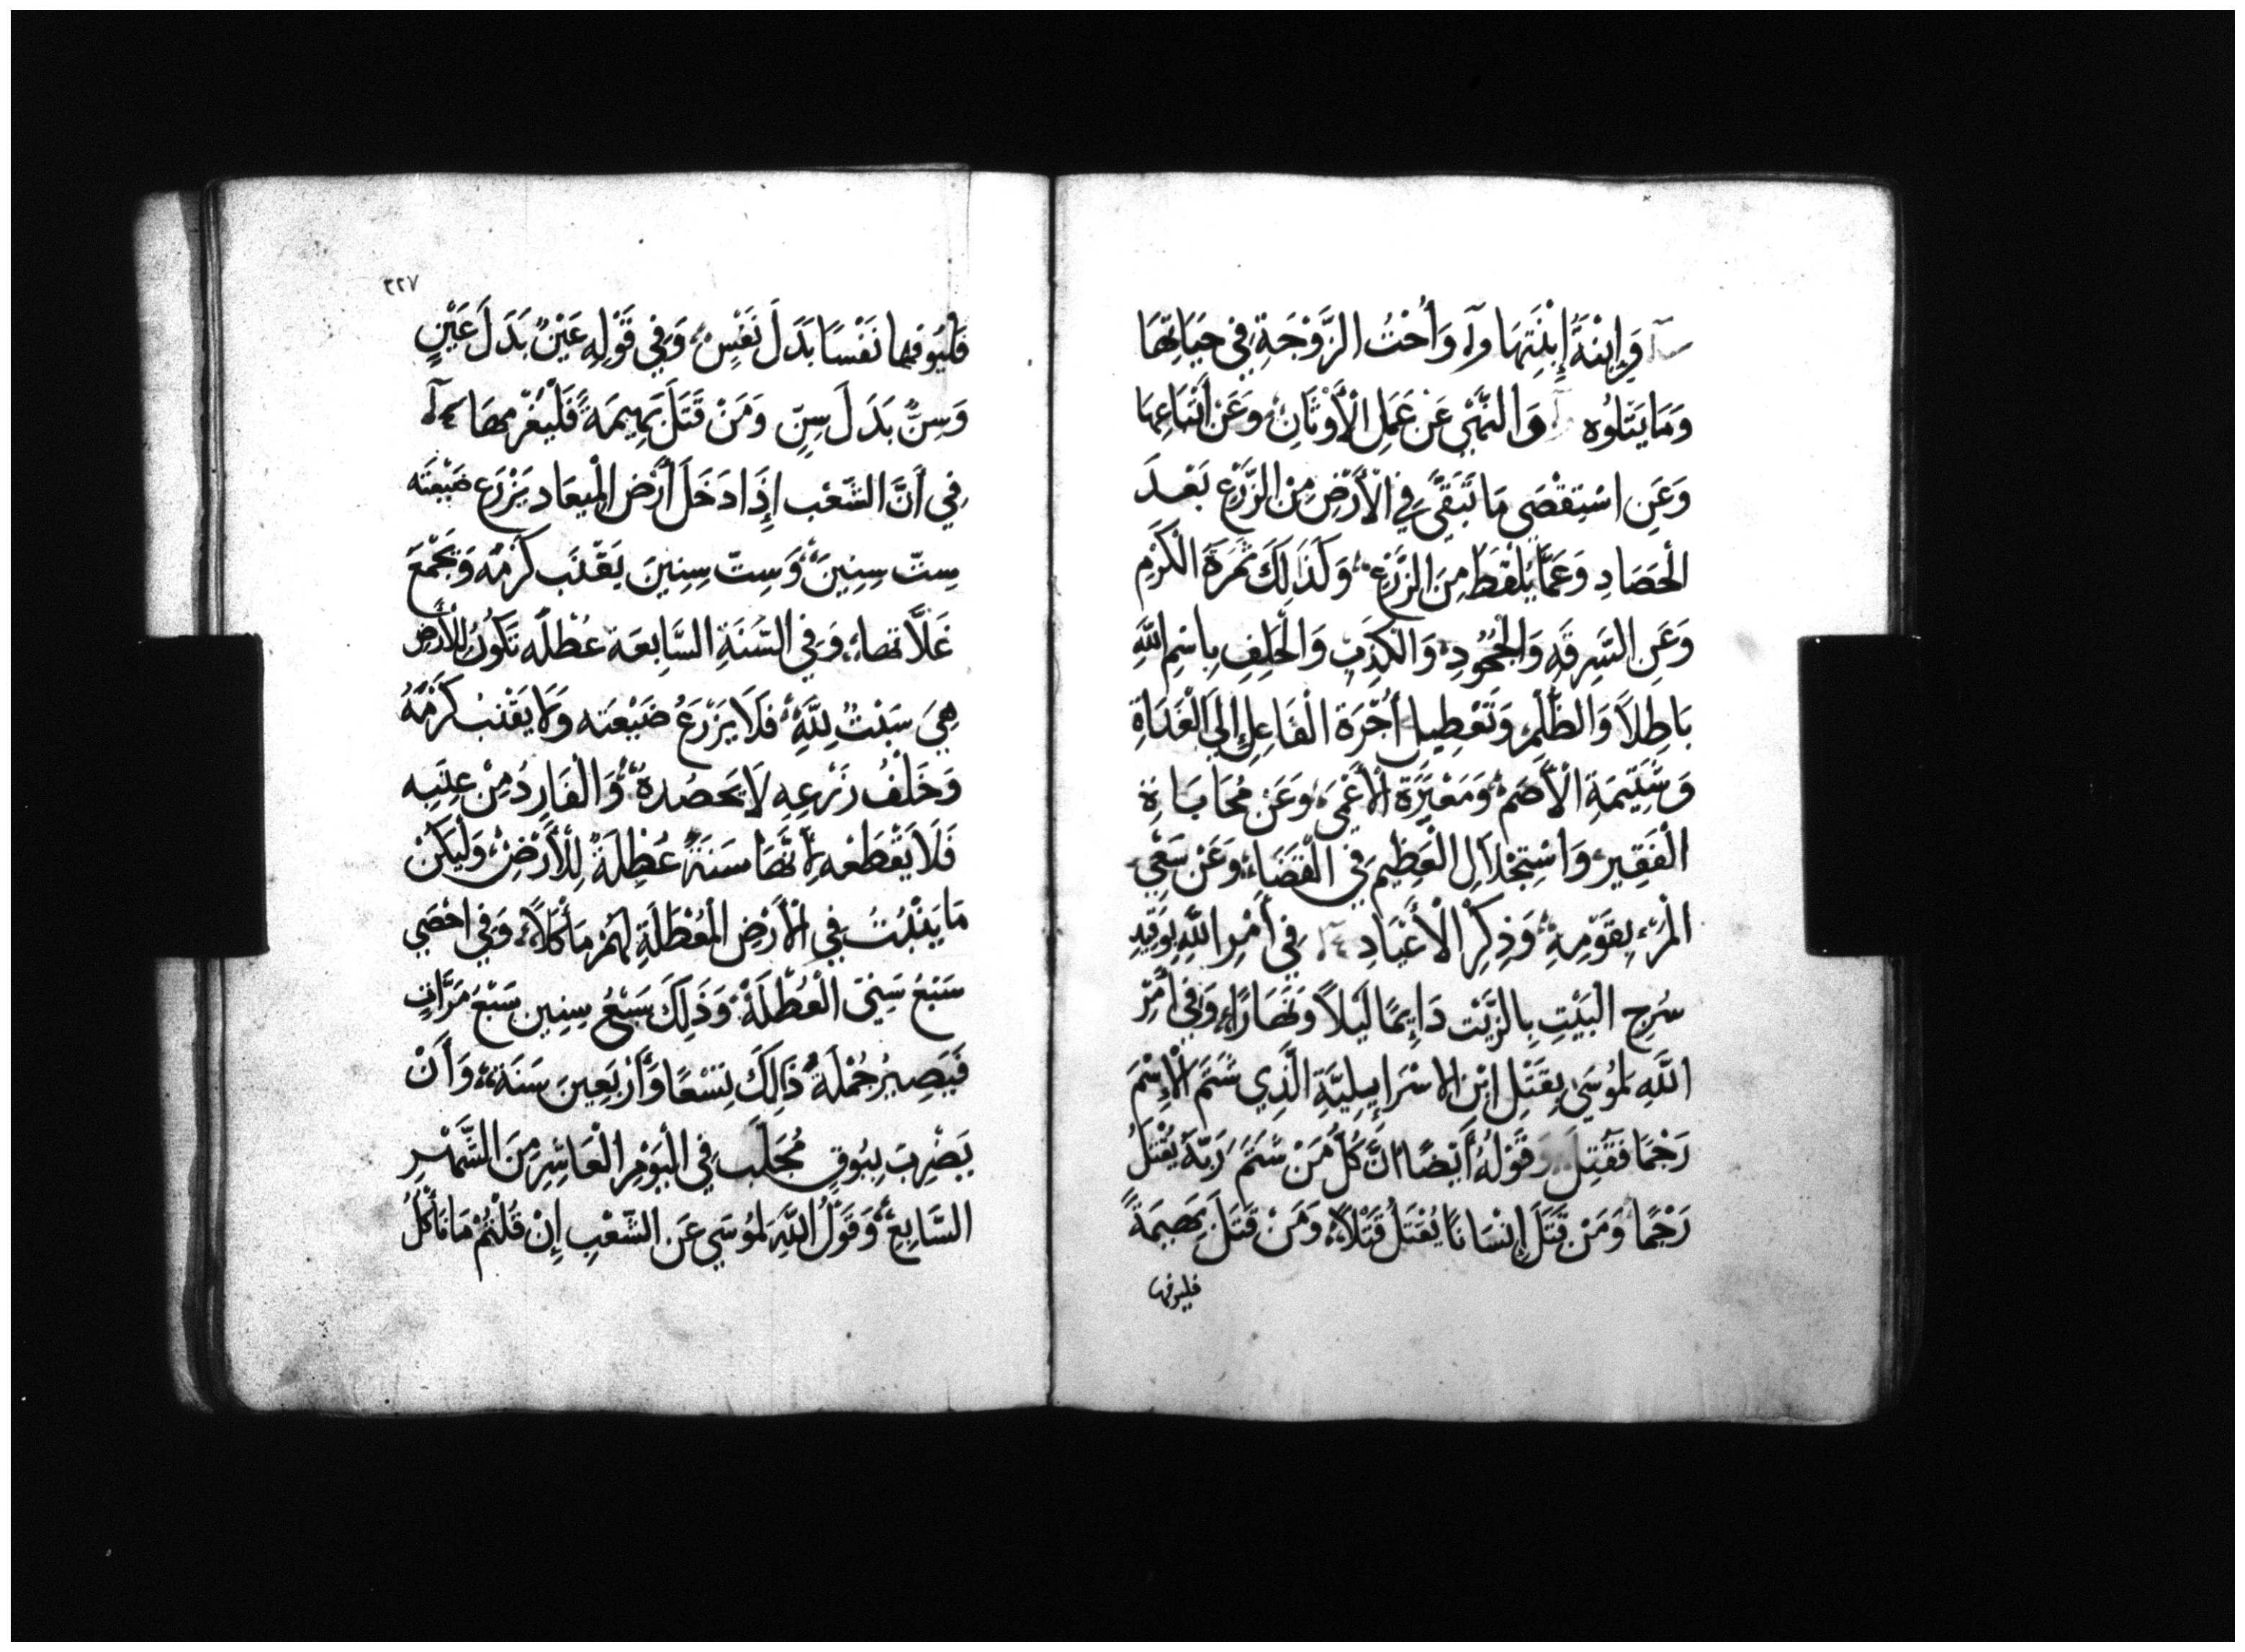 وَإِبْنَةُ إِبْنَتِهَا وَأُخْتُ الزَّوْجَةِ فِي حَيَاتِهَا
وَمَا يَتْلُوه وَالنَّهْيِ عَنْ عَمَلِ الْأَوْثَانِ وَعَنِ اتِّبَاعِهَا
وَعَنِ اسْتِقْصَى مَا تَبَقَّى فِي الْأَرْضِ مِنَ الزَّرْعِ بَعْدَ
الْحَصَادِ وَعَمَّا يُلْقَطُ مِنَ الزَّرْعِ وَكَذَلِكَ ثَمَرَةَ الْكَرْمِ
وَعَنِ السَّرِقَهِ وَالْجُحُودِ وَالْكَذِبِ وَالْحَلِفِ بِاسْمِ اللَّهِ
بَاطِلاً وَالظُّلْمِ وَتَعْطِيلِ أُجْرَةِ الْفَاعِلِ إِلَى الْغَدَاةِ
وَشَتِيمَةِ الْأَصَمّ وَمَعْثِرَةِ الْأَعْمَى وَعَنْ مُحَابَاةِ
الْفَقِيرِ وَاسْتِجْلَالِ الْعَظِيمِ فِي الْقَضَاءِ وَعَنْ سَعْيِ
الْمَرْءِ بِقَوْمِهِ وَذِكْرِ الْأَعْيَادِ فِي أَمْرِ اللَّهِ بِوَقِيدِ
سُرِجِ الْبَيْتِ بِالزَّيْت دَايِمًا لَيْلاً وَنَهَارًا وَفِي أَمْرِ
اللَّهِ لِمُوسَى بِقَتْلِ ابْنِ الاسْرَايِيلِيَّةِ الَّذِي شَتَمَ الْإِسْمَ
رَجْمًا فَقُتِلَ وَقَوْلُهُ أَيْضًا انَّ كُلَّ مَنْ شَتَمَ رَبَّهُ يُقْتَلُ
رَجْمًا وَمَنْ قَتَلَ إِنْسَانًا يُقْتَلُ قَتْلاً وَمَنْ قَتَلَ بَهِيمَةً
فليوفها
٢٢٧
فَلْيُوفِها نَفْسًا بَدَلَ نَفْسٍ وَفِي قَوْلِهِ عَيْنٌ بَدَلَ عَيْنٍ
وَسِنٌّ بَدَلَ سِنٍّ وَمَنْ قَتَلَ بَهِيمَةً فَلْيَغْرمهَا
فِي أَنَّ الشَّعْب إِذَا دَخَلَ أَرْض الْمِيعَاد يَزْرَع ضَيْعَتَه
سِتّ سِنِينَ وَسِتّ سِنِينَ يَقْنَب كَرْمَهُ وَيَجْمَعَ
غَلَّاتهَا وَفِي السَّنَةِ السَّابِعَة عُطْلَه تَكُونُ لِلْأَرْضِ
هِيَ سَبْتٌ لِلَّهِ فَلَا يَزْرَعُ ضَيْعَته وَلَا يَقْنِبُ كَرْمَهُ
وَخَلْفُ زَرْعِهِ لَا يَحْصُدهُ وَالْفَارِدُ مِنْ عِنَبِه
فَلَا يَقْطَعْه لِأَنَّهَا سَنَةً عُطْلَةً لِلْأَرْضِ وَلْيَكُنْ
مَا يَنْبُتُ فِي الْأَرْضِ الْمُعَطَّلَةِ لَهُمْ مَأْكَلاً وَفِي احْصَي
سَبْعُ سِنِيّ الْعُطْلَةُ وَذَلِكَ سَبْعُ سِنِين سَبْعُ مَرَّاتٍ
فَيَصِيرُ جُمْلَةُ ذَالِكَ تِسْعًا وَأَرْبَعِينَ سَنَة وَأَنْ
يَضْرِبَ بِبُوقٍ مُجَلِّبٍ فِي الْيَوْمِ الْعَاشِرِ مِنَ الشَّهْرِ
السَّابِعِ وَقَوْلُ اللَّهِ لِمُوسَى عَنِ الشَّعْبِ إِنْ قُلْتُمْ مَا نَأْكُلُ